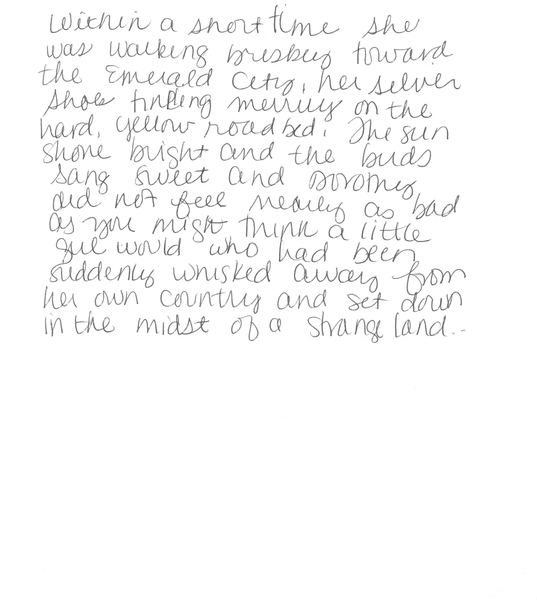 Within a short time she
was walking briskly toward
the Emerald City, her silver
shoes tinkling merrily on the
hard, yellow roadbed. The sun
shone bright and the birds
sang sweet and Dorothy
did not feel nearly as bad
as you might think a little
girl would who had been
suddenly whisked away from
her own country and set down
in the midst of a strange land..